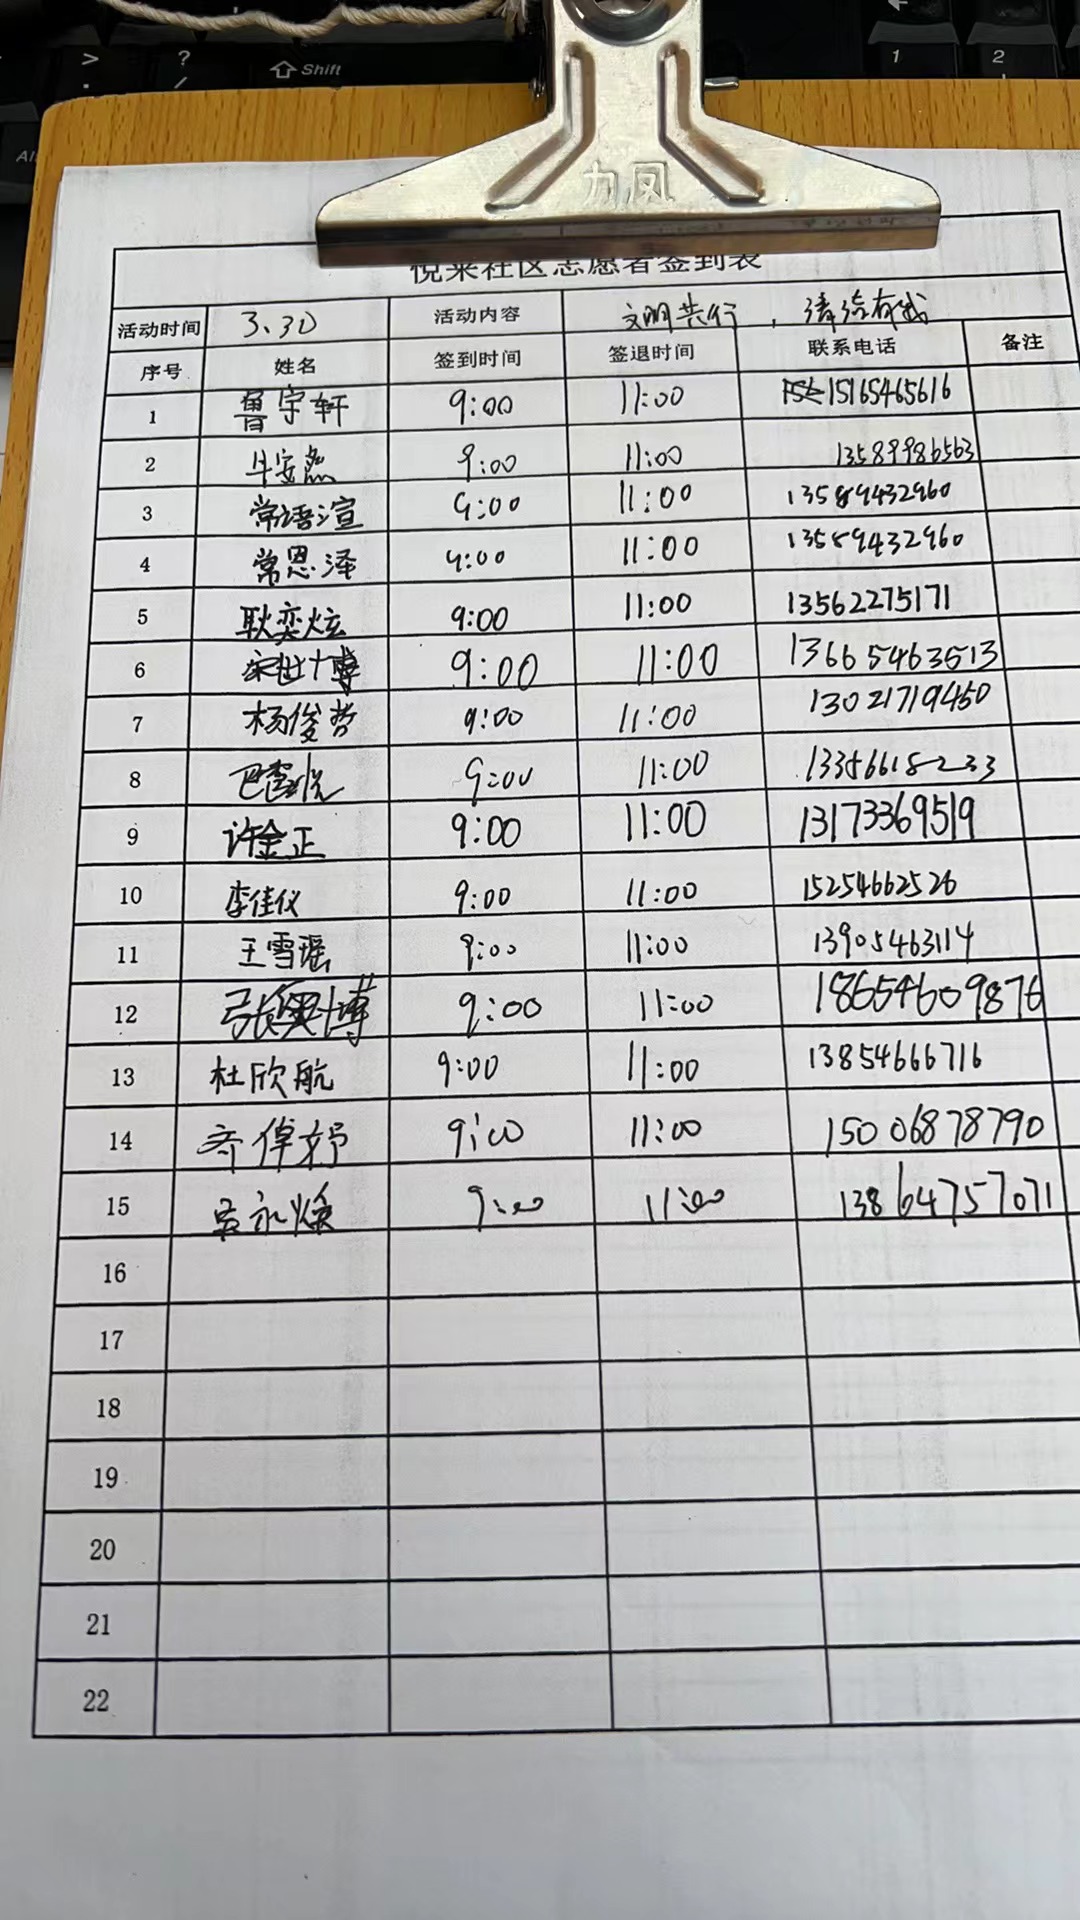 > ? Shift 1 2
. /
Al
力风
悦来社区志愿者签到表
活动时间 3.30 活动内容 文明共行，清洁有我
序号 姓名 签到时间 签退时间 联系电话 备注
1 鲁宇轩 9:00 11:00 15165465616
2 牛安然 9:00 11:00 13589986563
3 常语渲 9:00 11:00 13589432960
4 常恩泽 9:00 11:00 13589432960
5 耿奕炫 9:00 11:00 13562275171
6 9:00 11:00 13665463513
7 杨俊哲 9:00 11:00 13021719450
8 巴霆悦 9:00 11:00 13356618233
9 许金正 9:00 11:00 13173369519
10 李佳仪 9:00 11:00 15254662526
11 王雪瑶 9:00 11:00 13905463114
12 张奥博 9:00 11:00 18654609876
13 杜欣航 9:00 11:00 13854666716
14 9:00 11:00 15006878790
15 吴永焕 9:00 11:00 13864757071
16
17
18
19
20
21
22